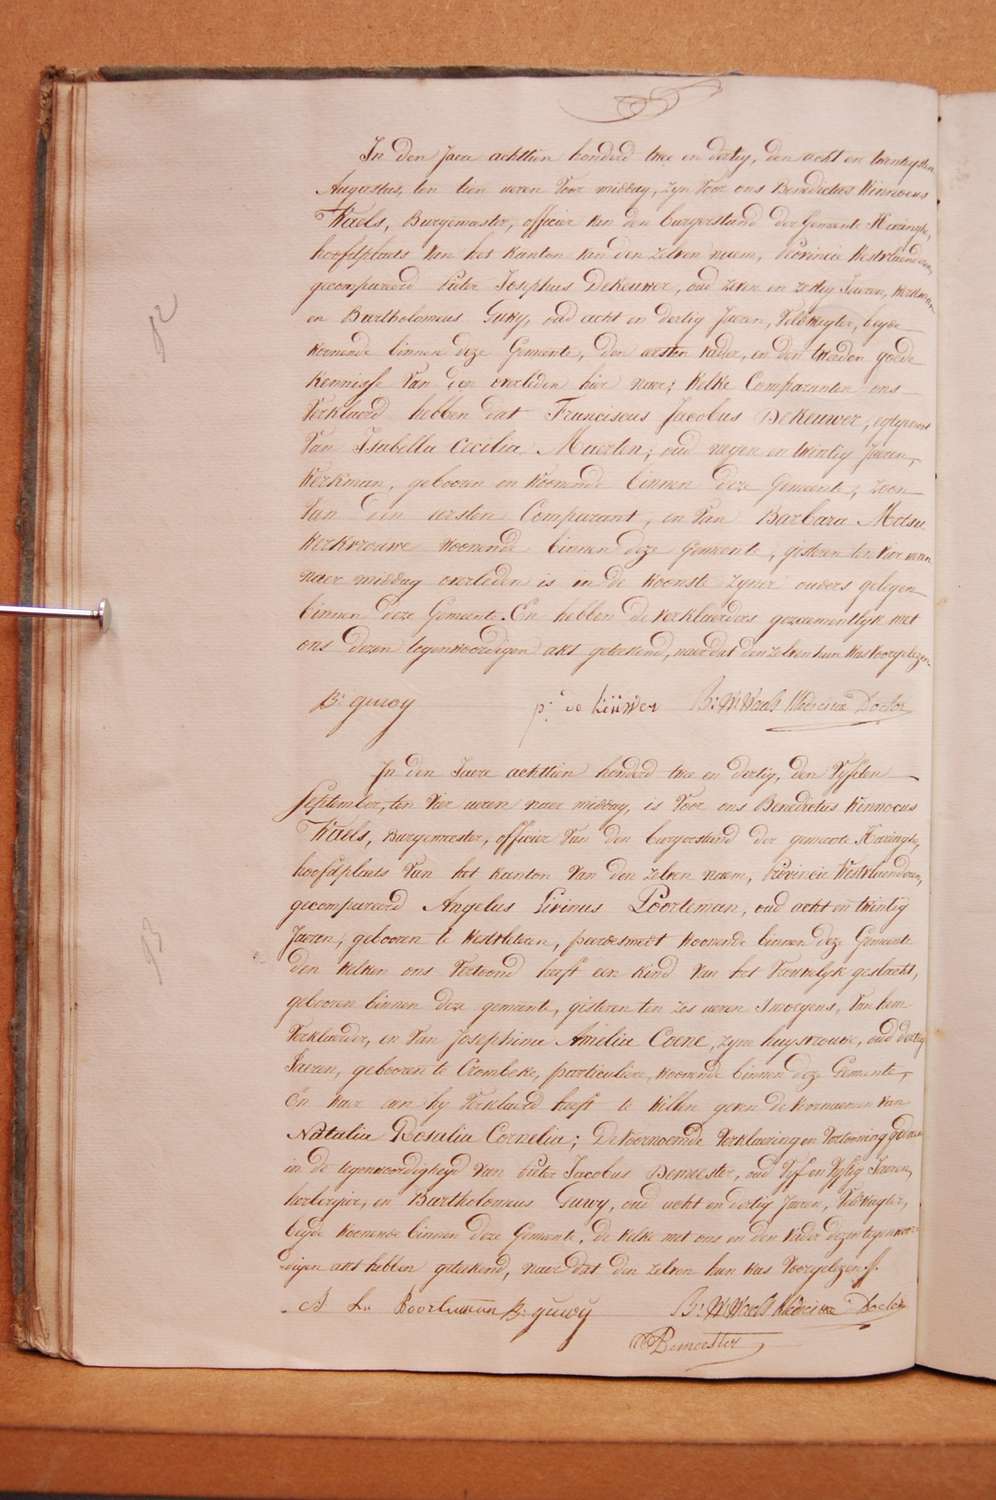 In den Jaere achttien honderd twee en dertig, den acht en twintigsten
Augustus, ten tien ueren voor middag, zyn voor ons Benedictus Winnocus
Waels, Burgemeester, officier van den burgerstand der Gemeente Haringhe,
hoofdplaets van het kanton van den zelven naem, Provincie Westvlaenderen,
gecompareerd Pieter Josephus DeKeuwer, oud zeven en zestig Jaeren, werkman
en Bartholomeus Guwy, oud acht en dertig Jaeren, Veldwagter, beyde
woonende binnen deze Gemeente, den eersten vader, en den tweeden goede
kennisse van den overleden hier naer; welke Comparanten ons
verklaerd hebben dat Franciscus Jacobus DeKeuwer, egtgenoot
van Isabella Cecilia Maerten; oud negen en twintig Jaeren,
werkman, gebooren en woonende binnen deze Gemeente, zoon
van den eersten Comparant, en van Barbara Metsu
werkvrouwe woonende binnen deze Gemeente, gisteren ten vier ueren
naer middag overleden is in de woonste zyner ouders gelegen
binnen deze Gemeente. En hebben de verklaerders gezaementlyk met
ons dezen tegenwoordigen akt geteekend, naer dat den zelven hun was voorgelezen.
B: guwy p: de keuwer B: W: Waels Medicinæ Doctor
92
In den Jaere achttien honderd twee en dertig, den vyfsten
September, ten vier ueren naer middag, is voor ons Benedictus Winnocus
Waels, Burgemeester, officier van den burgerstand der gemeente Haringhe,
hoofdplaets van het kanton van den zelven naem, Provincie Westvlaenderen,
gecompareerd Angelus Livinus Poorteman, oud acht en twintig
Jaeren, gebooren te Westvleteren, woonende binnen deze Gemeente
den welken ons vertoond heeft een kind van het vrouwelyk geslacht,
gebooren binnen deze gemeente, gisteren ten zes ueren s'morgens, van hem
verklaerder, en van Josephina Amelia Coene, zyne huysvrouwe, oud dertig
Jaeren, gebooren te Crombeke, particuliere, woonende binnen deze Gemeente,
En waer aen hy verklaerd heeft te willen geven de voornaemen van
Natalia Rosalia Cornelia; De voornoemde verklaering en vertooning gedaen
in de tegenwoordigheyd van Pieter Jacobus Demeester, oud vyf en vyftig Jaeren,
herbergier, en Bartholomeus Guwy, oud acht en dertig Jaeren, Veldwagter,
beyde woonende binnen deze Gemeente, de welke met ons en den vader dezen tegenwoor-
digen akt hebben geteekend, naer dat den zelven hun was voorgelezen.
93
A L. Poorteman B: guwy B: W: Waels Medicinæ Doctor
Demeester